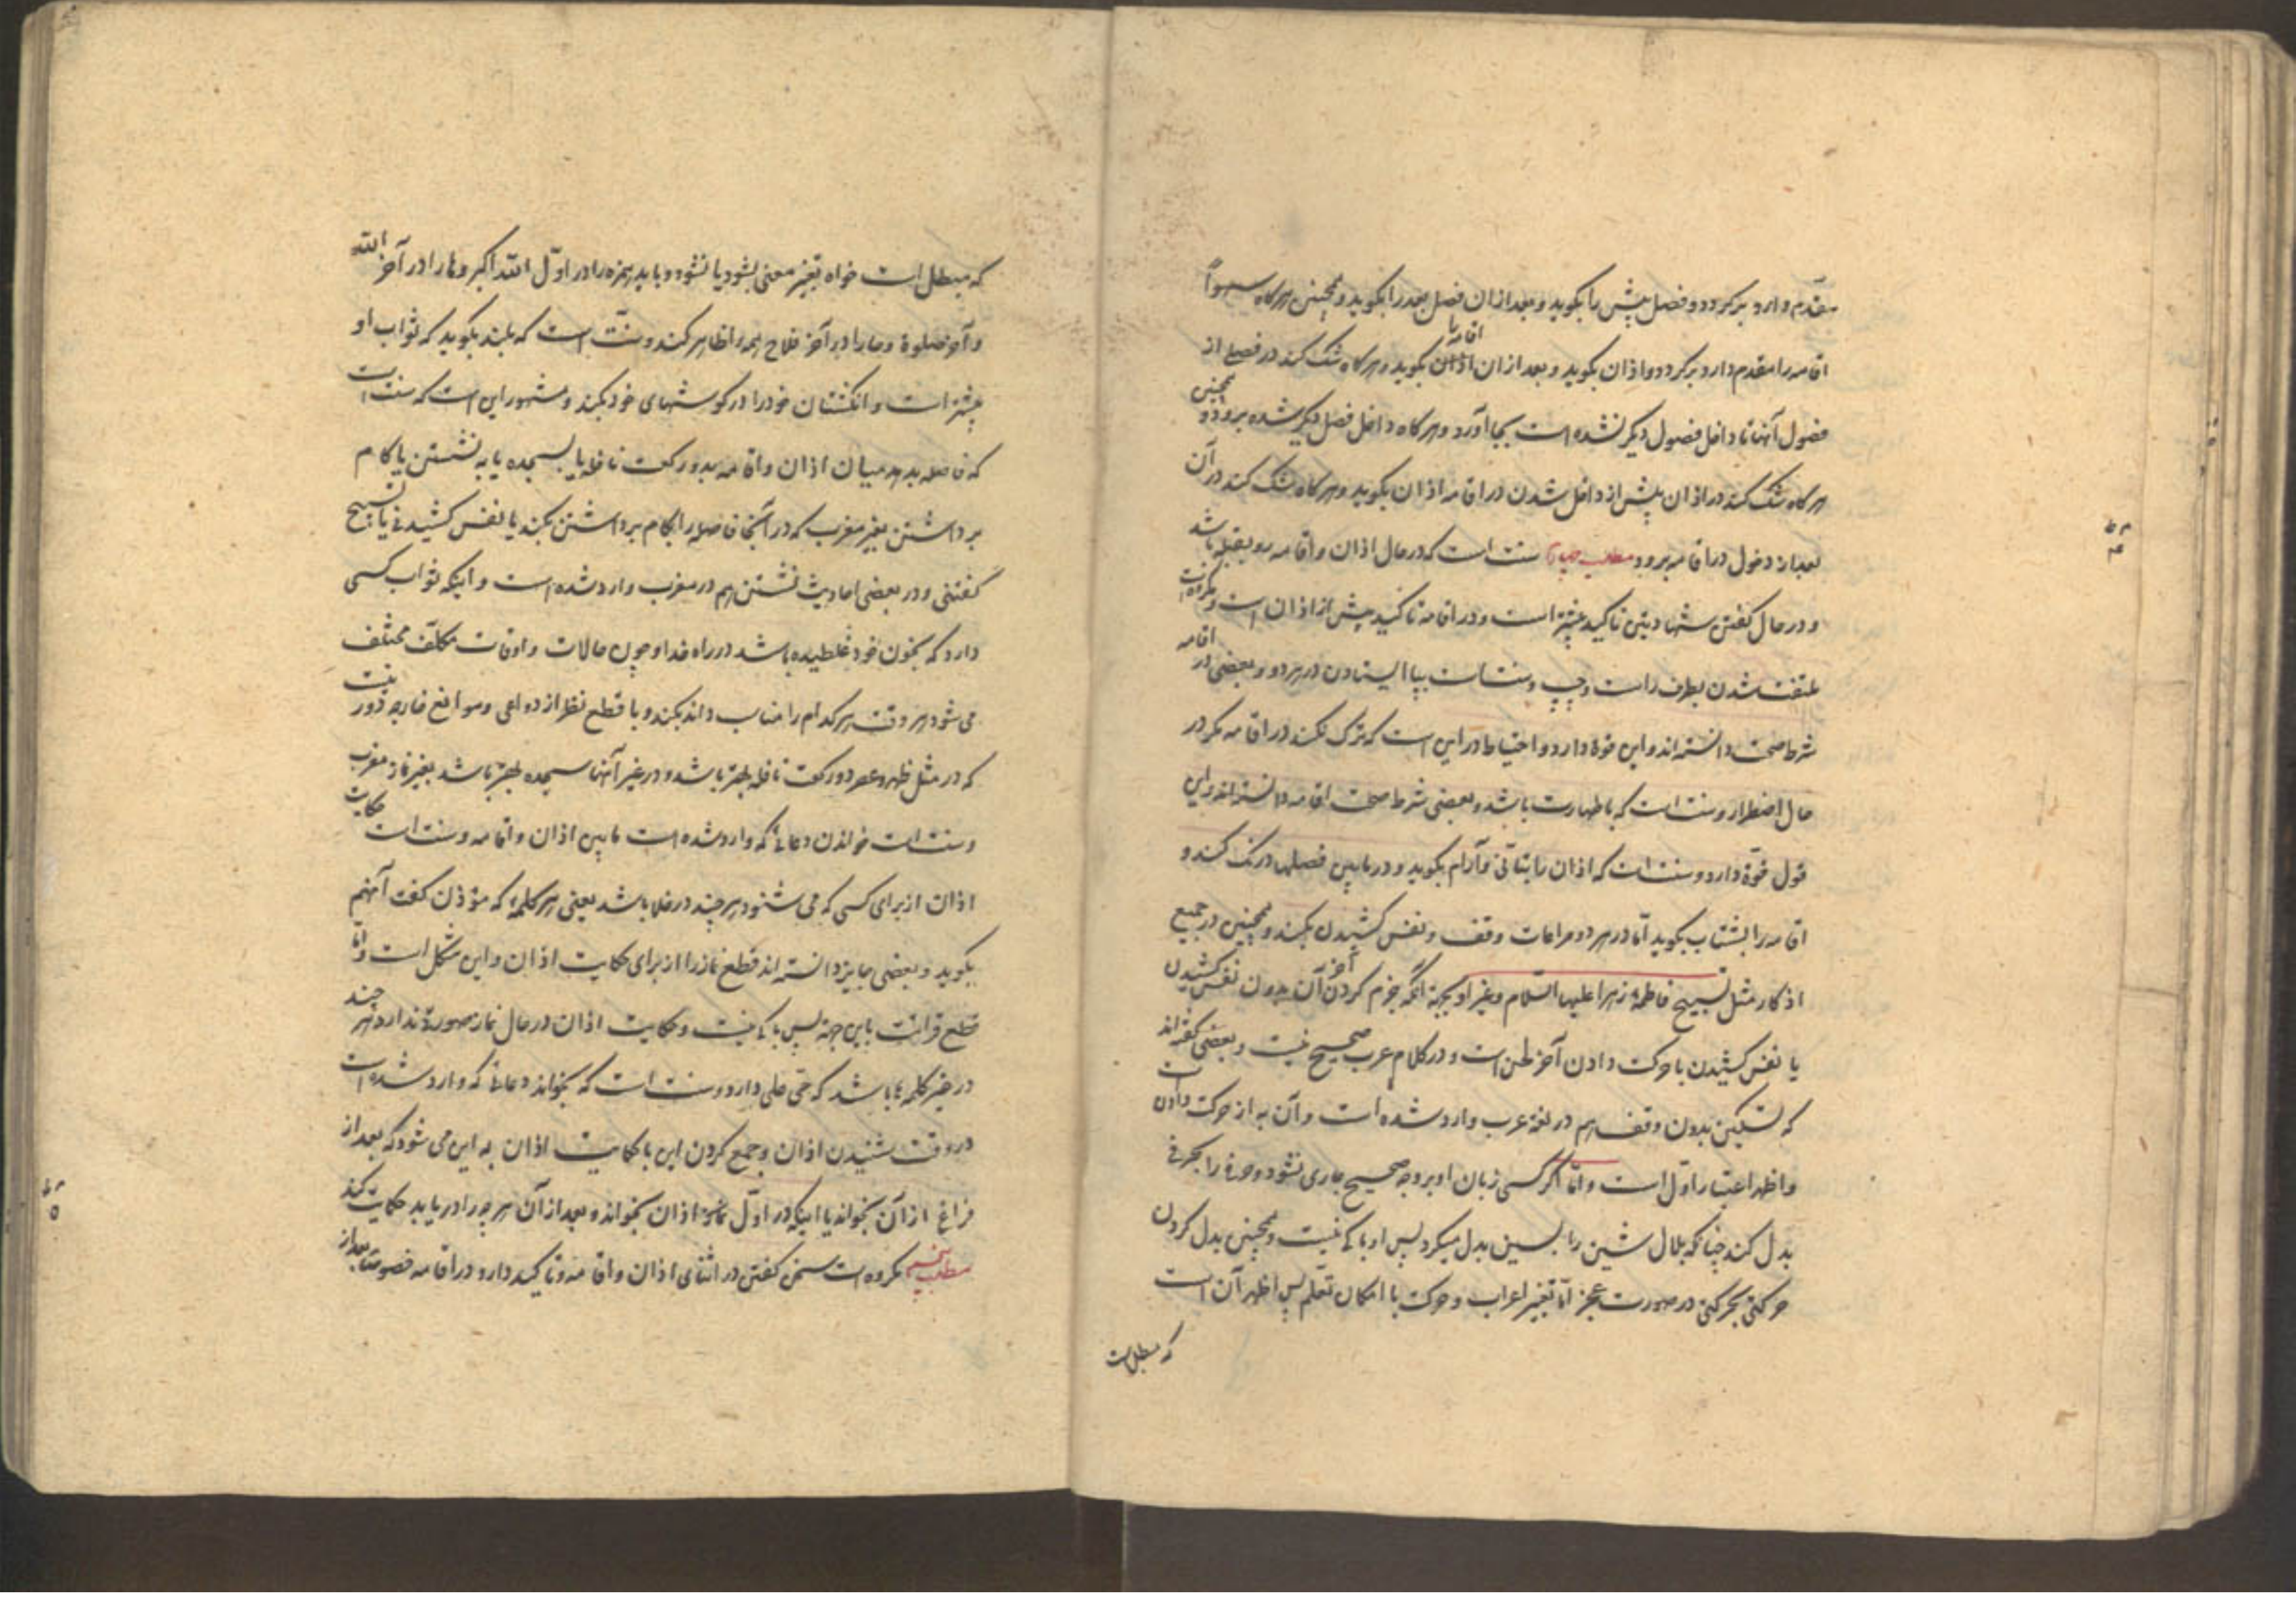 مقدّم دارد برگردد و فصل پیش را بگوید و بعد از ان فصل بعد را بگوید و همچنین هرگاه سهواً
اقامه را مقدم دارد برگردد و اذان بگوید و بعد از ان اقامه را بگوید و هرگاه شک کند در فصلی از
فصول آنها تا داخل فصول دیگر نشده است بجا آورد و هرگاه داخل فصل دیگر شده برود و همچنین
هرگاه شک کند در اذان پیش از داخل شدن در اقامه اذان بگوید و هرگاه شک کند در آن
بعد از دخول در اقامه برود مطلب چهارم سنت است که در حال اذان و اقامه رو بقبله باشد
و در حال گفتن شهادتین تاکید بیشتر است و در اقامه تاکید بیش از اذان است و مکروه است
ملتفت شدن بطرف راست و چپ و سنت است بپا ایستادن در هر دو و بعضی در اقامه
شرط صحت دانسته‌اند و این قوة دارد و احتیاط در این است که ترک نکند در اقامه مگر در
حال اضطرار و سنت است که با طهارت باشد و بعضی شرط صحت اقامه دانسته‌اند و این
قول قوّة دارد و سنت است که اذان را بتأنی و آرام بگوید و در مابین فصلها درنگ کند و
اقامه را بشتاب بگوید امّا در هر دو مراعات وقف و نفس کشیدن بکند و همچنین در جمیع
اذکار مثل تسبیح فاطمهٔ زهرا علیها السّلام و غیر او بجهة آنکه جزم کردن آخر آن بدون نفس کشیدن
یا نفس کشیدن با حرکت دادن آخر لحن است و در کلام عرب صحیح نیست و بعضی گفته‌اند
که تسکین بدون وقف هم در لغة عرب وارد شده است و آن به از حرکت دادن است
و اظهر اعتبار اوّل است و امّا اگر کسی زبان او بر وجه صحیح جاری نشود و حرفی را بحرفی
بدل کند چنانکه بلال شین را بسین بدل میکرد پس او باکی نیست و همچنین بدل کردن
حرکتی بحرکتی در صورت عجز امّا تغییر اعراب و حرکت با امکان تعلّم پس اظهر آن است
که مبطل است
که مبطل است خواه تغییر معنی بشود یا نشود و باید همزه را در اوّل اللّه اکبر و ها را در آخر اللّه
و آخر صلوة و حا را در آخر فلاح همه را ظاهر کند و سنّت است که بلند بگوید که ثواب او
بیشتر است و انگشتان خود را در گوشهای خود بکند و مشهور این است که سنت است
که فاصله بدهد میان اذان و اقامه بدو رکعت نافله یا بسجده یا به نشستن یا گام
برداشتن بغیر مغرب که در آنجا فاصله را بگام برداشتن بکند یا نفس کشیدنی یا تسبیح
گفتنی و در بعضی احادیث نشستن هم در مغرب وارد شده است و اینکه ثواب کسی
دارد که بخون خود غلطیده باشد در راه خدا و چون حالات و اوقات مکلّف مختلف
می شود هر وقت هر کدام را مناسب داند بکند و با قطع نظر از دواعی و موانع خارجه دور نیست
که در مثل ظهر و عصر دو رکعت نافله بهتر باشد و در غیر آنها سجده بهتر باشد بغیر نماز مغرب
و سنت است خواندن دعائی که وارد شده است مابین اذان و اقامه و سنت است حکایت
اذان از برای کسی که می شنود هر چند در خلا باشد یعنی هر کلمهٔ که مؤذن گفت آنهم
بگوید و بعضی جایز دانسته‌اند قطع نماز را از برای حکایت اذان و این مشکل است و امّا
قطع قرائت باین جهة پس باکی نیست و حکایت اذان در حال نماز صورة ندارد هر چند
در غیر کلمه‌ها باشد که حیّ علی دارد و سنت است که بخواند دعائی که وارد شده است
در وقت شنیدن اذان و جمع کردن این با حکایت اذان به این می شود که بعد از
فراغ از آن بخواند یا اینکه در اوّل اذان بخواند و بعد از آن هر چه را دریابد حکایت کند
مطلب پنجم مکروه است سخن گفتن در اثنای اذان و اقامه و تاکید دارد در اقامه خصوصاً بعد از